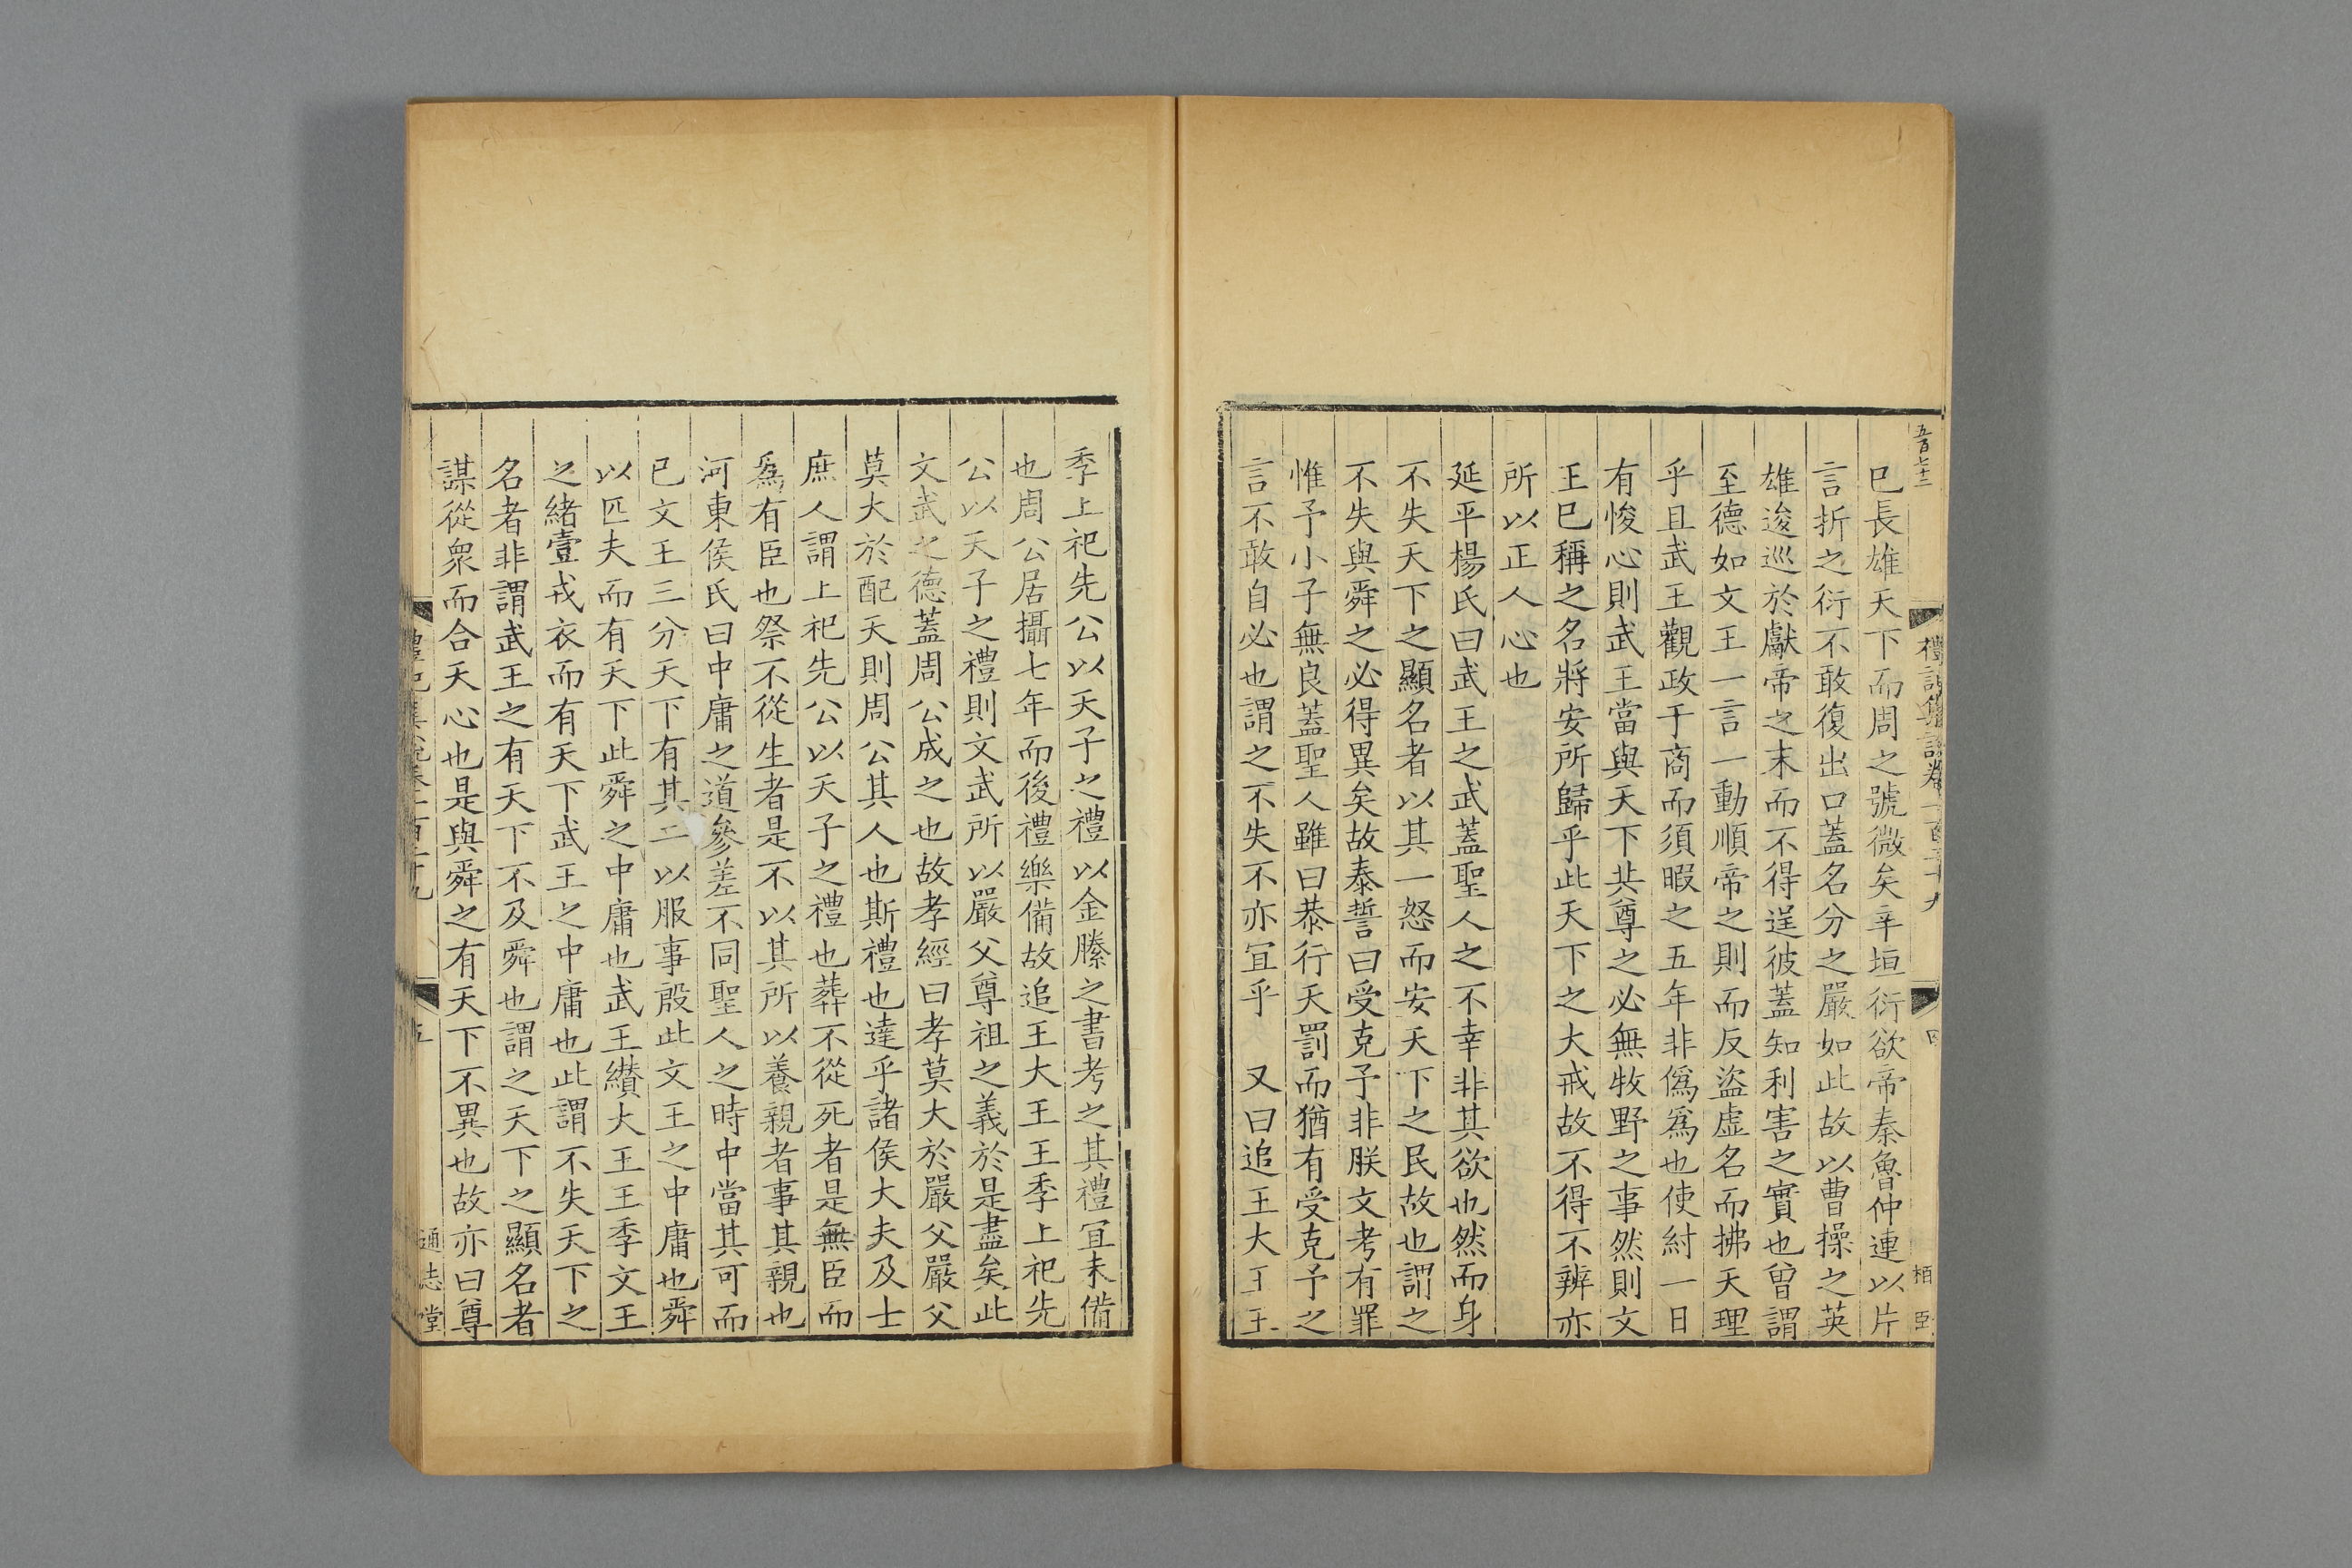 五百七十三
禮記集說卷一百二十九
四
栢臣
已長雄天下而周之號微矣辛垣衍欲帝秦魯仲連以片
言折之衍不敢復出口蓋名分之嚴如此故以曹操之英
雄逡巡於獻帝之末而不得逞彼蓋知利害之實也曾謂
至德如文王一言一動順帝之則而反盜虛名而拂天理
乎且武王觀政于商而須暇之五年非僞爲也使紂一日
有悛心則武王當與天下共尊之必無牧野之事然則文
王已稱之名將安所歸乎此天下之大戒故不得不辨亦
所以正人心也
延平楊氏曰武王之武蓋聖人之不幸非其欲也然而身
不失天下之顯名者以其一怒而安天下之民故也謂之
不失與舜之必得異矣故泰誓曰受克予非朕文考有罪
惟予小子無良蓋聖人雖曰恭行天罰而猶有受克予之
言不敢自必也謂之不失不亦宜乎 又曰追王大王王
季上祀先公以天子之禮以金縢之書考之其禮宜未備
也周公居攝七年而後禮樂備故追王大王王季上祀先
公以天子之禮則文武所以嚴父尊祖之義於是盡矣此
文武之德蓋周公成之也故孝經曰孝莫大於嚴父嚴父
莫大於配天則周公其人也斯禮也達乎諸侯大夫及士
庶人謂上祀先公以天子之禮也葬不從死者是無臣而
爲有臣也祭不從生者是不以其所以養親者事其親也
河東侯氏曰中庸之道參差不同聖人之時中當其可而
已文王三分天下有其二以服事殷此文王之中庸也舜
以匹夫而有天下此舜之中庸也武王纘大王王季文王
之緒壹戎衣而有天下武王之中庸也此謂不失天下之
名者非謂武王之有天下不及舜也謂之天下之顯名者
謀從衆而合天心也是與舜之有天下不異也故亦曰尊
禮記集說卷一百二十九
五
通志堂